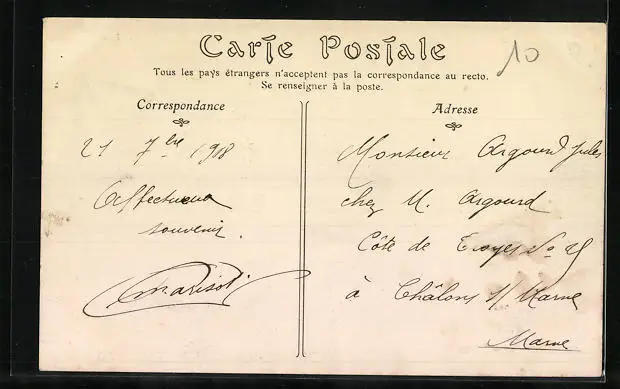 Carte Postale
10
Tous les pays étrangers n'acceptent pas la correspondance au recto.
Se renseigner à la poste.
Correspondance
21 7bre 1918
Affectueux
souvenir.
Adresse
Monsieur Argourd Jules
chez M. Argourd
Côte de Troyes No
à Châlons s/ Marne
Marne